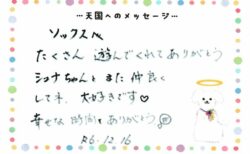 …天国へのメッセージ…
ソックスへ
たくさん遊んでくれてありがとう
シュナちゃんとまた仲良く
してネ 大好きです♡
幸せな時間をありがとう
R6.12.16